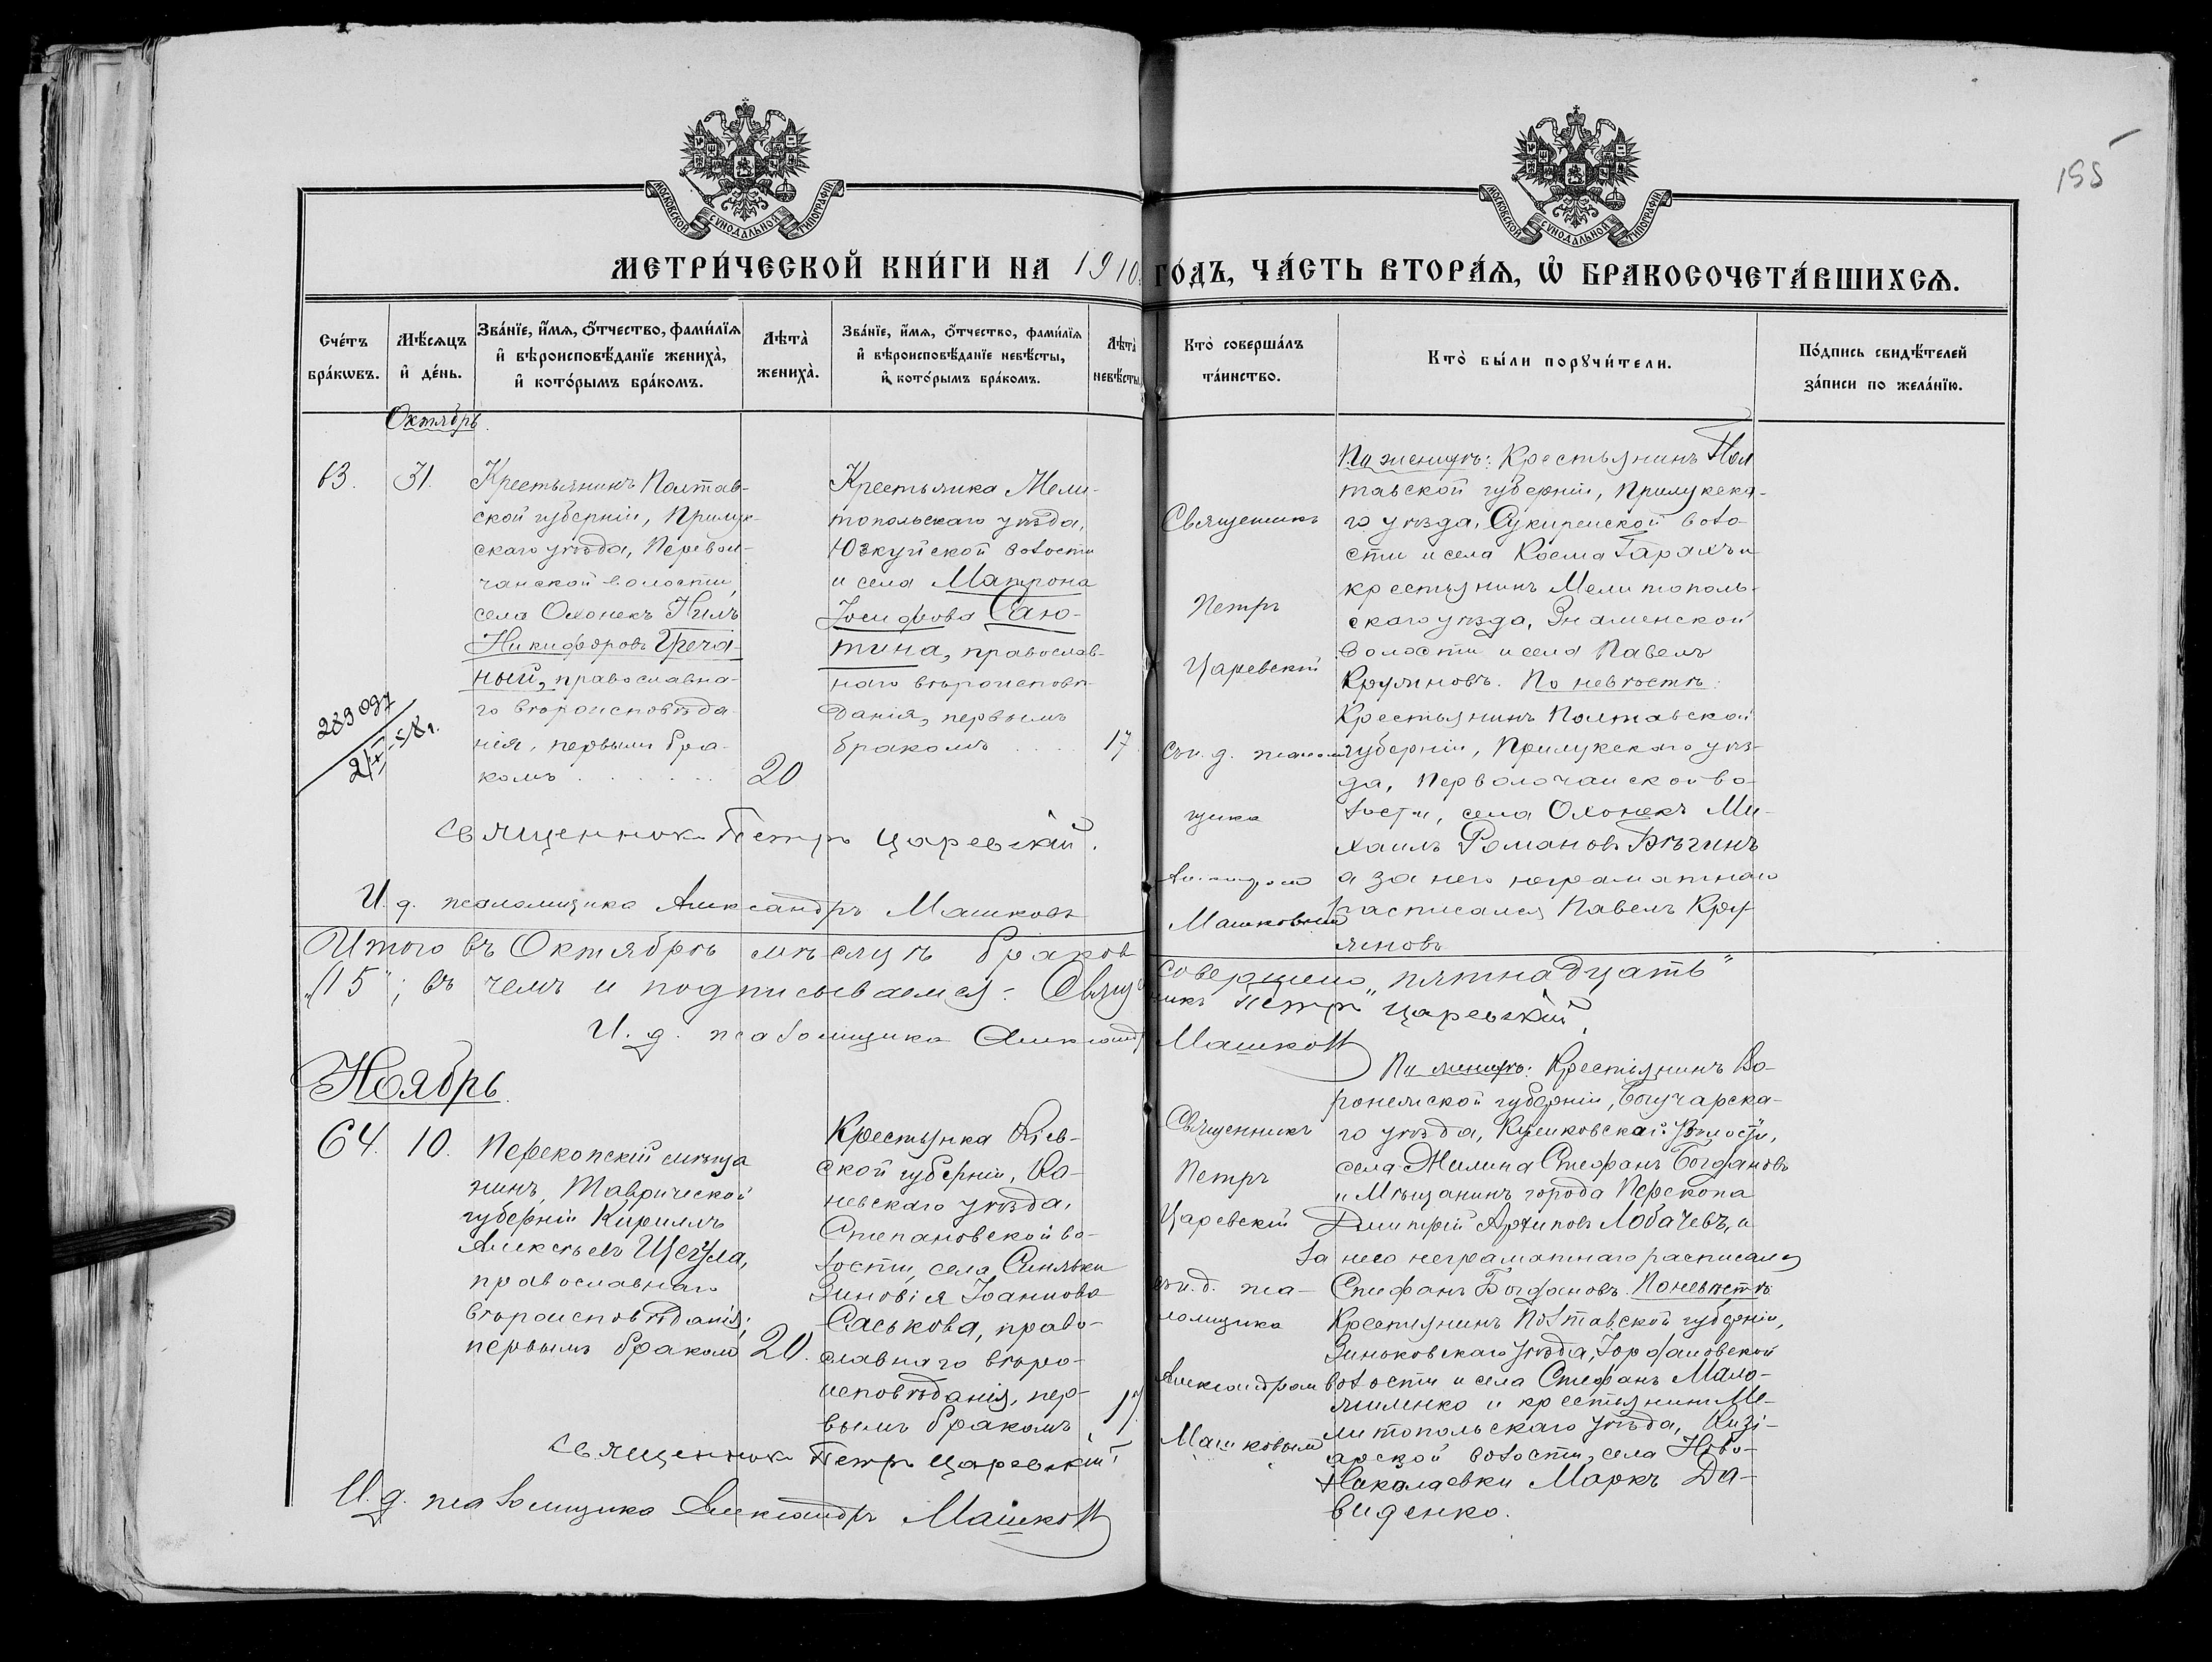 155
МОСКОВСКОЙ СѴНОДАЛЬНОЙ ТИПОГРАФІИ
МОСКОВСКОЙ СѴНОДАЛЬНОЙ ТИПОГРАФІИ
МЕТРИ́ЧЕСКОЙ КНИ́ГИ НА 1910 ГО́ДЪ, ЧА́СТЬ ВТОРА́Ѧ, Ѽ БРАКОСОЧЕТА́ВШИХСѦ.
Сче́тъ бра́кѡвъ.
Мѣ́сѧцъ и҆ де́нь.
Зва́нїе, и҆́мѧ, ѻ҆́тчество, фами́лїѧ
и҆ вѣроисповѣ́данїе жениха̀,
и҆ кото́рымъ бра́комъ.
Лѣта̀ жениха̀.
Зва́нїе, и҆́мѧ, ѻ҆́тчество, фами́лїѧ
и҆ вѣроисповѣ́данїе невѣ́сты,
и҆ кото́рымъ бра́комъ.
Лѣта̀ невѣ́сты
Кто̀ соверша́лъ
та́инство.
Кто̀ бы́ли порꙋчи́тели.
По́дпись свидѣ́телей
за́писи по жела́нїю.
Октябрь.
63.
31.
Крестьянинъ Полтав-
ской губерніи, Прилук-
скаго уѣзда, Перевол-
чанской волости,
села Олонекъ Нилъ
Никифоровъ Греча-
ный, православна-
го вѣроисповѣда-
нія, первымъ бра-
комъ
20
289097
Крестьянка Мели-
топольскаго уѣзда,
Юзкуйской волости
и села Матрона
Іосифова Саю-
тина, православ-
наго вѣроисповѣ-
данія, первымъ
бракомъ
17
Священникъ
Петръ
Царевскій
съ и. д. псалом-
щика
Александромъ
Машковымъ
По женихѣ: Крестьянинъ Пол
тавской губерніи, Прилукска-
го уѣзда, воло-
сти и села Косма и
крестьянинъ Мелитополь-
скаго уѣзда, Знаменской
волости и села Павелъ
По невѣстѣ:
Крестьянинъ Полтавской
губерніи, Прилукскаго уѣз-
да, Переволочанской во-
лости, села Олонекъ Ми-
хаилъ Романовъ Бѣгинъ
а за него неграматнаго
расписался Павелъ
Священникъ Петръ Царевскій.
И. д. псаломщика Александръ Машковъ
Итого въ Октябрѣ мѣсяцѣ браковъ совершено „пятнадцать"
„15"; въ чемъ и подписываемся: Священникъ Петръ Царевскій.
И. д. псаломщика Александръ Машковъ
Ноябрь.
64.
10.
Перекопскій мѣща
нинъ, Таврической
губерніи Кириллъ
Алексѣевъ Щегула,
православнаго
вѣроисповѣданія;
первымъ бракомъ
20.
Крестьянка Кіев-
ской губерніи, Ка-
невскаго уѣзда,
Степановской во-
лости, села Синявки
Зиновія Іоаннова
Саськова, право-
славнаго вѣро-
исповѣданія, пер-
вымъ бракомъ
17
Священникъ
Петръ
Царевскій
съ и. д. пса-
ломщика
Александромъ
Машковымъ
По женихѣ: Крестьянинъ Во-
ронежской губерніи, Богучарска-
го уѣзда, волости,
села Стефанъ Богдановъ
и Мѣщанинъ города Перекопа
Дмитрій Архиповъ Лобачевъ, а
за него неграматнаго расписался
Стефанъ Богдановъ. По невѣстѣ
Крестьянинъ Полтавской губерніи,
Зиньковскаго уѣзда,
волости и села Стефанъ Мало-
и крестьянинъ Ме-
литопольскаго уѣзда,
волости, села Ново-
Николаевки Маркъ Да-
виденко.
Священникъ Петръ Царевскій
И. д. псаломщика Александръ Машковъ